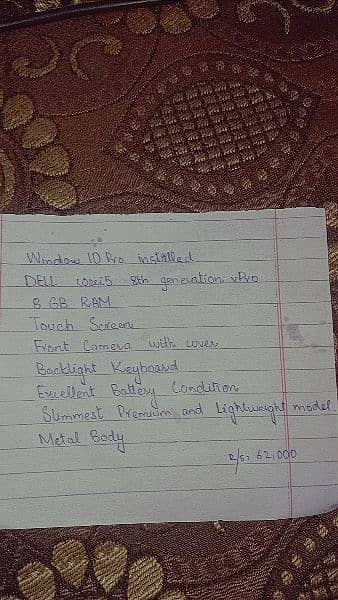 Window 10 Pro installed
DELL corei5 8th generation vPro
8 GB RAM
Touch Screen
Front Camera with cover
Backlight Keyboard
Excellent Battery Condition
Slimmest Premium and Lightweight model
Metal Body
R/s: 62,000